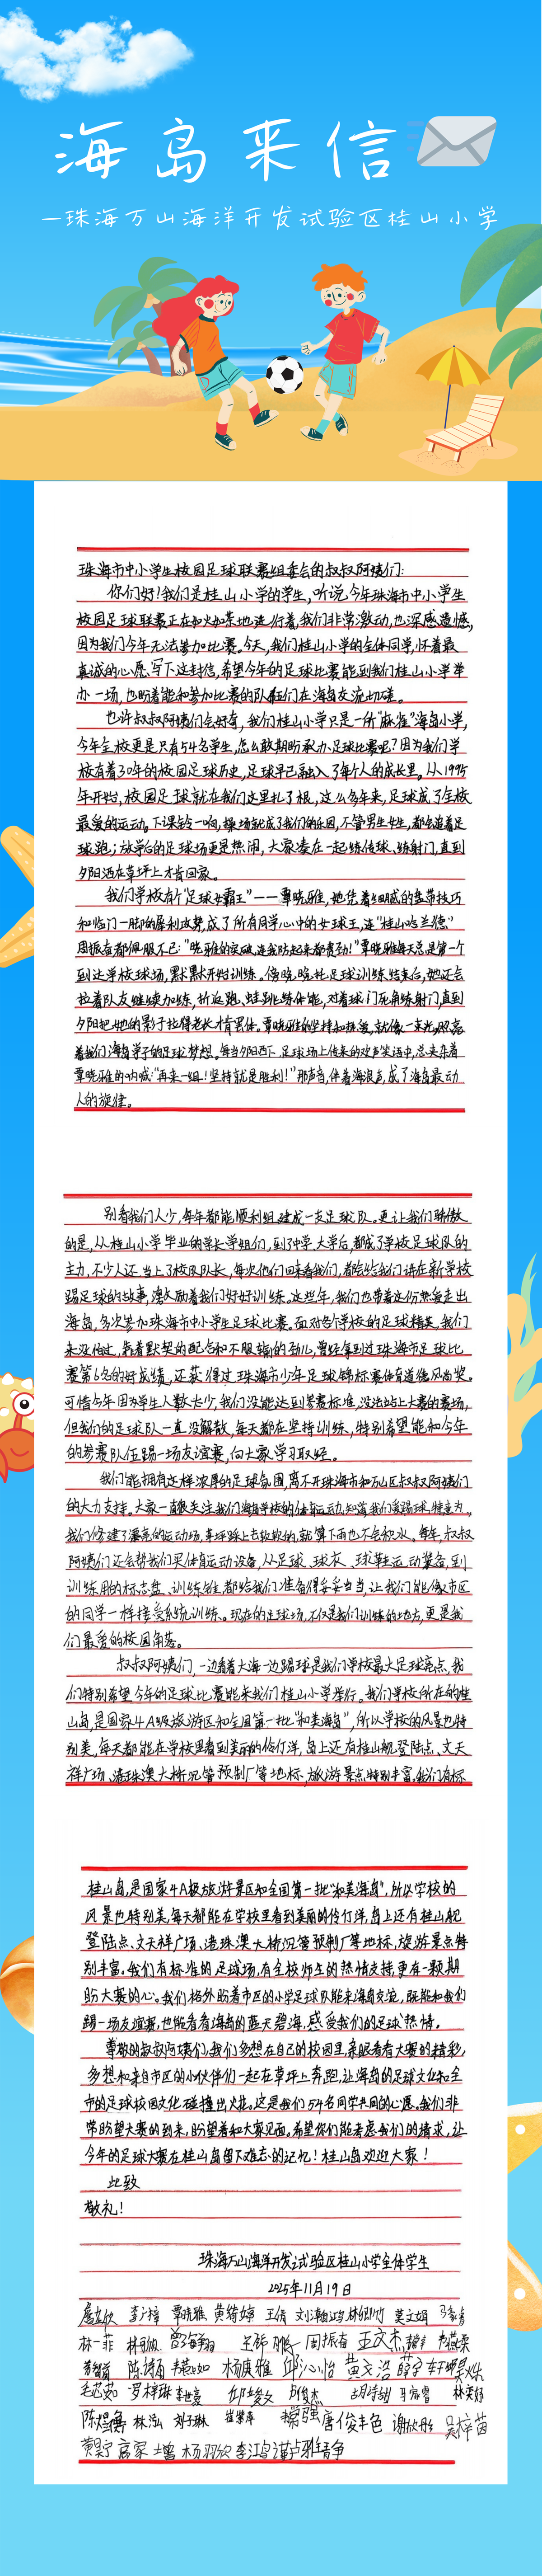 海岛来信
—珠海万山海洋开发试验区桂山小学
珠海市中小学生校园足球联赛组委会的叔叔阿姨们：
你们好！我们是桂山小学的学生，听说今年珠海市中小学生
校园足球联赛正在如火如荼地进行着，我们非常激动，也深感遗憾，
因为我们今年无法参加比赛。今天，我们桂山小学的全体同学，怀着最
真诚的心愿写下这封信，希望今年的足球比赛能到我们桂山小学举
办一场，也盼着能和参加比赛的队伍们在海岛交流切磋。
也许叔叔阿姨们会好奇，我们桂山小学只是一所“麻雀”海岛小学，
今年全校更是只有54名学生，怎么敢期盼承办足球比赛呢？因为我们学
校有着30年的校园足球历史，足球早已融入了每个人的成长里。从1995
年开始，校园足球就在我们这里扎了根，这么多年来，足球成了全校
最爱的运动。下课铃一响，操场就成了我们的乐园，不管男生女生，都会追着足
球跑；放学后的足球场更是热闹，大家凑在一起练传球、练射门，直到
夕阳洒在草坪上才肯回家。
我们学校有个“足球女霸王”——覃晓雅，她凭着细腻的盘带技巧
和临门一脚的犀利攻势，成了所有同学心中的女球王，连“桂山哈兰德”
周振奋都佩服不已：“晓雅的突破，连我防起来都费劲！”覃晓雅每天总是第一个
到达学校球场，默默开始训练。傍晚，晚托足球训练结束后，她还会
拉着队友继续加练，折返跑、蛙跳练体能，对着球门死角练射门，直到
夕阳把她的影子拉得老长才肯罢休。覃晓雅的坚持和热爱，就像一束光，照亮
着我们海岛学子的足球梦想。每当夕阳西下，足球场上传来的欢声笑语中，总夹杂着
覃晓雅的呐喊：“再来一组！坚持就是胜利！”那声音，伴着海浪声，成了海岛最动
人的旋律。
别看我们人少，每年都能顺利组建成一支足球队。更让我们骄傲
的是，从桂山小学毕业的学长学姐们，到了中学、大学后，都成了学校足球队的
主力，不少人还当上了校队队长，每次他们回来看我们，都会给我们讲在新学校
踢足球的故事，激励着我们好好训练。这些年，我们也带着这份热爱走出
海岛，多次参加珠海市中小学生足球比赛。面对各个学校的足球精英，我们
未没怕过，靠着默契的配合和不服输的劲儿，曾经拿到过珠海市足球比
赛第6名的好成绩，还获得过珠海市少年足球锦标赛体育道德风尚奖。
可惜今年因为学生人数太少，我们没能达到参赛标准，没法站上大赛的赛场，
但我们的足球队一直没解散，每天都在坚持训练，特别希望能和今年
的参赛队伍踢一场友谊赛，向大家学习取经。
我们能拥有这样浓厚的足球氛围，离不开珠海市和万山区叔叔阿姨们
的大力支持。大家一直很关注我们海岛学校的体育运动，知道我们爱踢球，特意为
我们修建了漂亮的运动场，草坪踩上去软软的，就算下雨也不会积水。每年，叔叔
阿姨们还会帮我们买体育运动设备，从足球、球衣、球鞋运动装备，到
训练用的标志盘、训练锥，都给我们准备得妥妥当当，让我们能像市区
的同学一样接受系统训练。现在的足球场，不仅是我们训练的地方，更是我
们最爱的校园角落。
叔叔阿姨们，一边看着大海一边踢球是我们学校最大足球亮点，我
们特别希望今年的足球比赛能来我们桂山小学举行。我们学校所在的桂
山岛，是国家4A级旅游区和全国第一批“和美海岛”，所以学校的风景也特
别美，每天都能在学校里看到美丽的伶仃洋，岛上还有桂山舰登陆点、文天
祥广场、港珠澳大桥沉管预制厂等地标，旅游景点特别丰富。我们有标
桂山岛，是国家4A级旅游景区和全国第一批“和美海岛”，所以学校的
风景也特别美，每天都能在学校里看到美丽的伶仃洋，岛上还有桂山舰
登陆点、文天祥广场、港珠澳大桥沉管预制厂等地标，旅游景点特
别丰富。我们有标准的足球场，有全校师生的热情支持，更有一颗期
盼大赛的心。我们格外盼着市区的小学足球队能来海岛交流，既能和我们
踢一场友谊赛，也能看看海岛的蓝天碧海，感受我们的足球热情。
尊敬的叔叔阿姨们，我们多想在自己的校园里，亲眼看看大赛的精彩，
多想和来自市区的小伙伴们一起在草坪上奔跑，让海岛的足球文化和全
市的足球校园文化碰撞出火花。这是我们54名同学共同的心愿。我们非
常盼望大赛的到来，盼望着和大家见面。希望你们能考虑我们的请求，让
今年的足球大赛在桂山岛留下难忘的记忆！桂山岛欢迎大家！
此致
敬礼！
珠海万山海洋开发试验区桂山小学全体学生
2025年11月19日
覃晓雅 黄绮婷 王倩
林一菲 周振奋 王文杰
陈诗甬 杨康雅 邱沁怡 黄文浩
毛芯茹 罗梓琳 李世豪 邱峻俊杰 胡诗甜 马富雪
林泓 刘子琳 唐俊丰 谢欣彤 吴梓苗
黄昊宁 高军 杨羽欣 李江乌